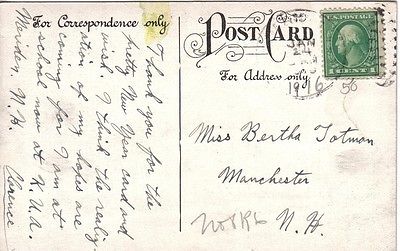 For Correspondence only
Thank you for the
pretty New Year card and
wish. I think the reali-
zation of my hopes are
coming for I am at
school now at K.U.A.
Meriden, N.H. Clarence
POST CARD
For Address only
JAN
1916
U.S. POSTAGE
1 CENT 1
Miss Bertha Totman
Manchester
N.H.